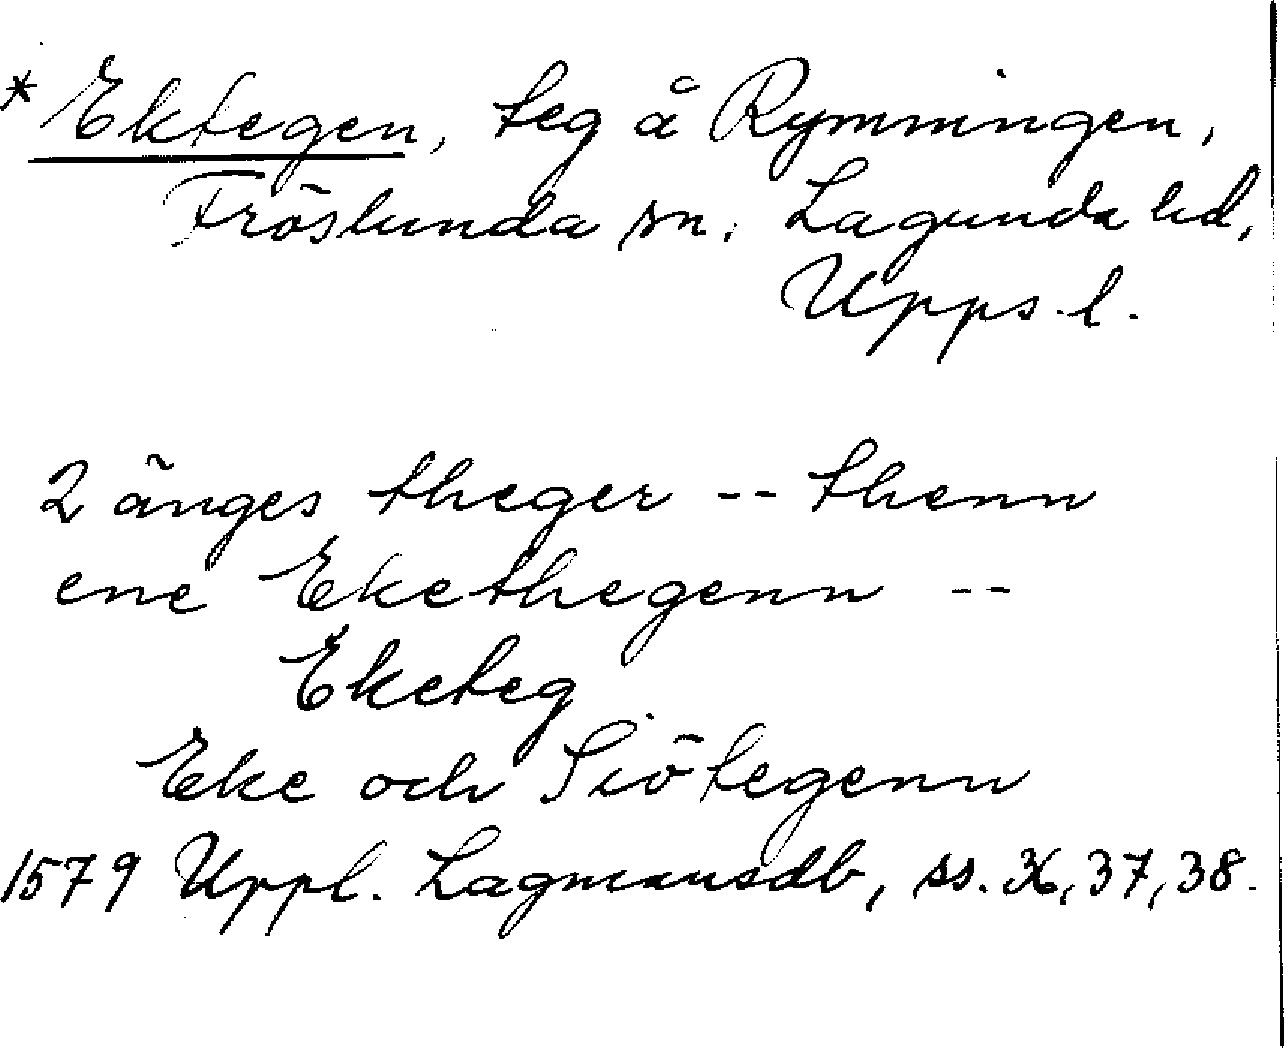 * Ektegen, teg å Rymningen,
Fröslunda sn. Lagunda hd,
Upps. l.
2 änges theger -- thenn
ene Ekethegenn --
Eketeg
Eke och Siötegenn
1579 Uppl. Lagmansdb, ss. 36, 37, 38.